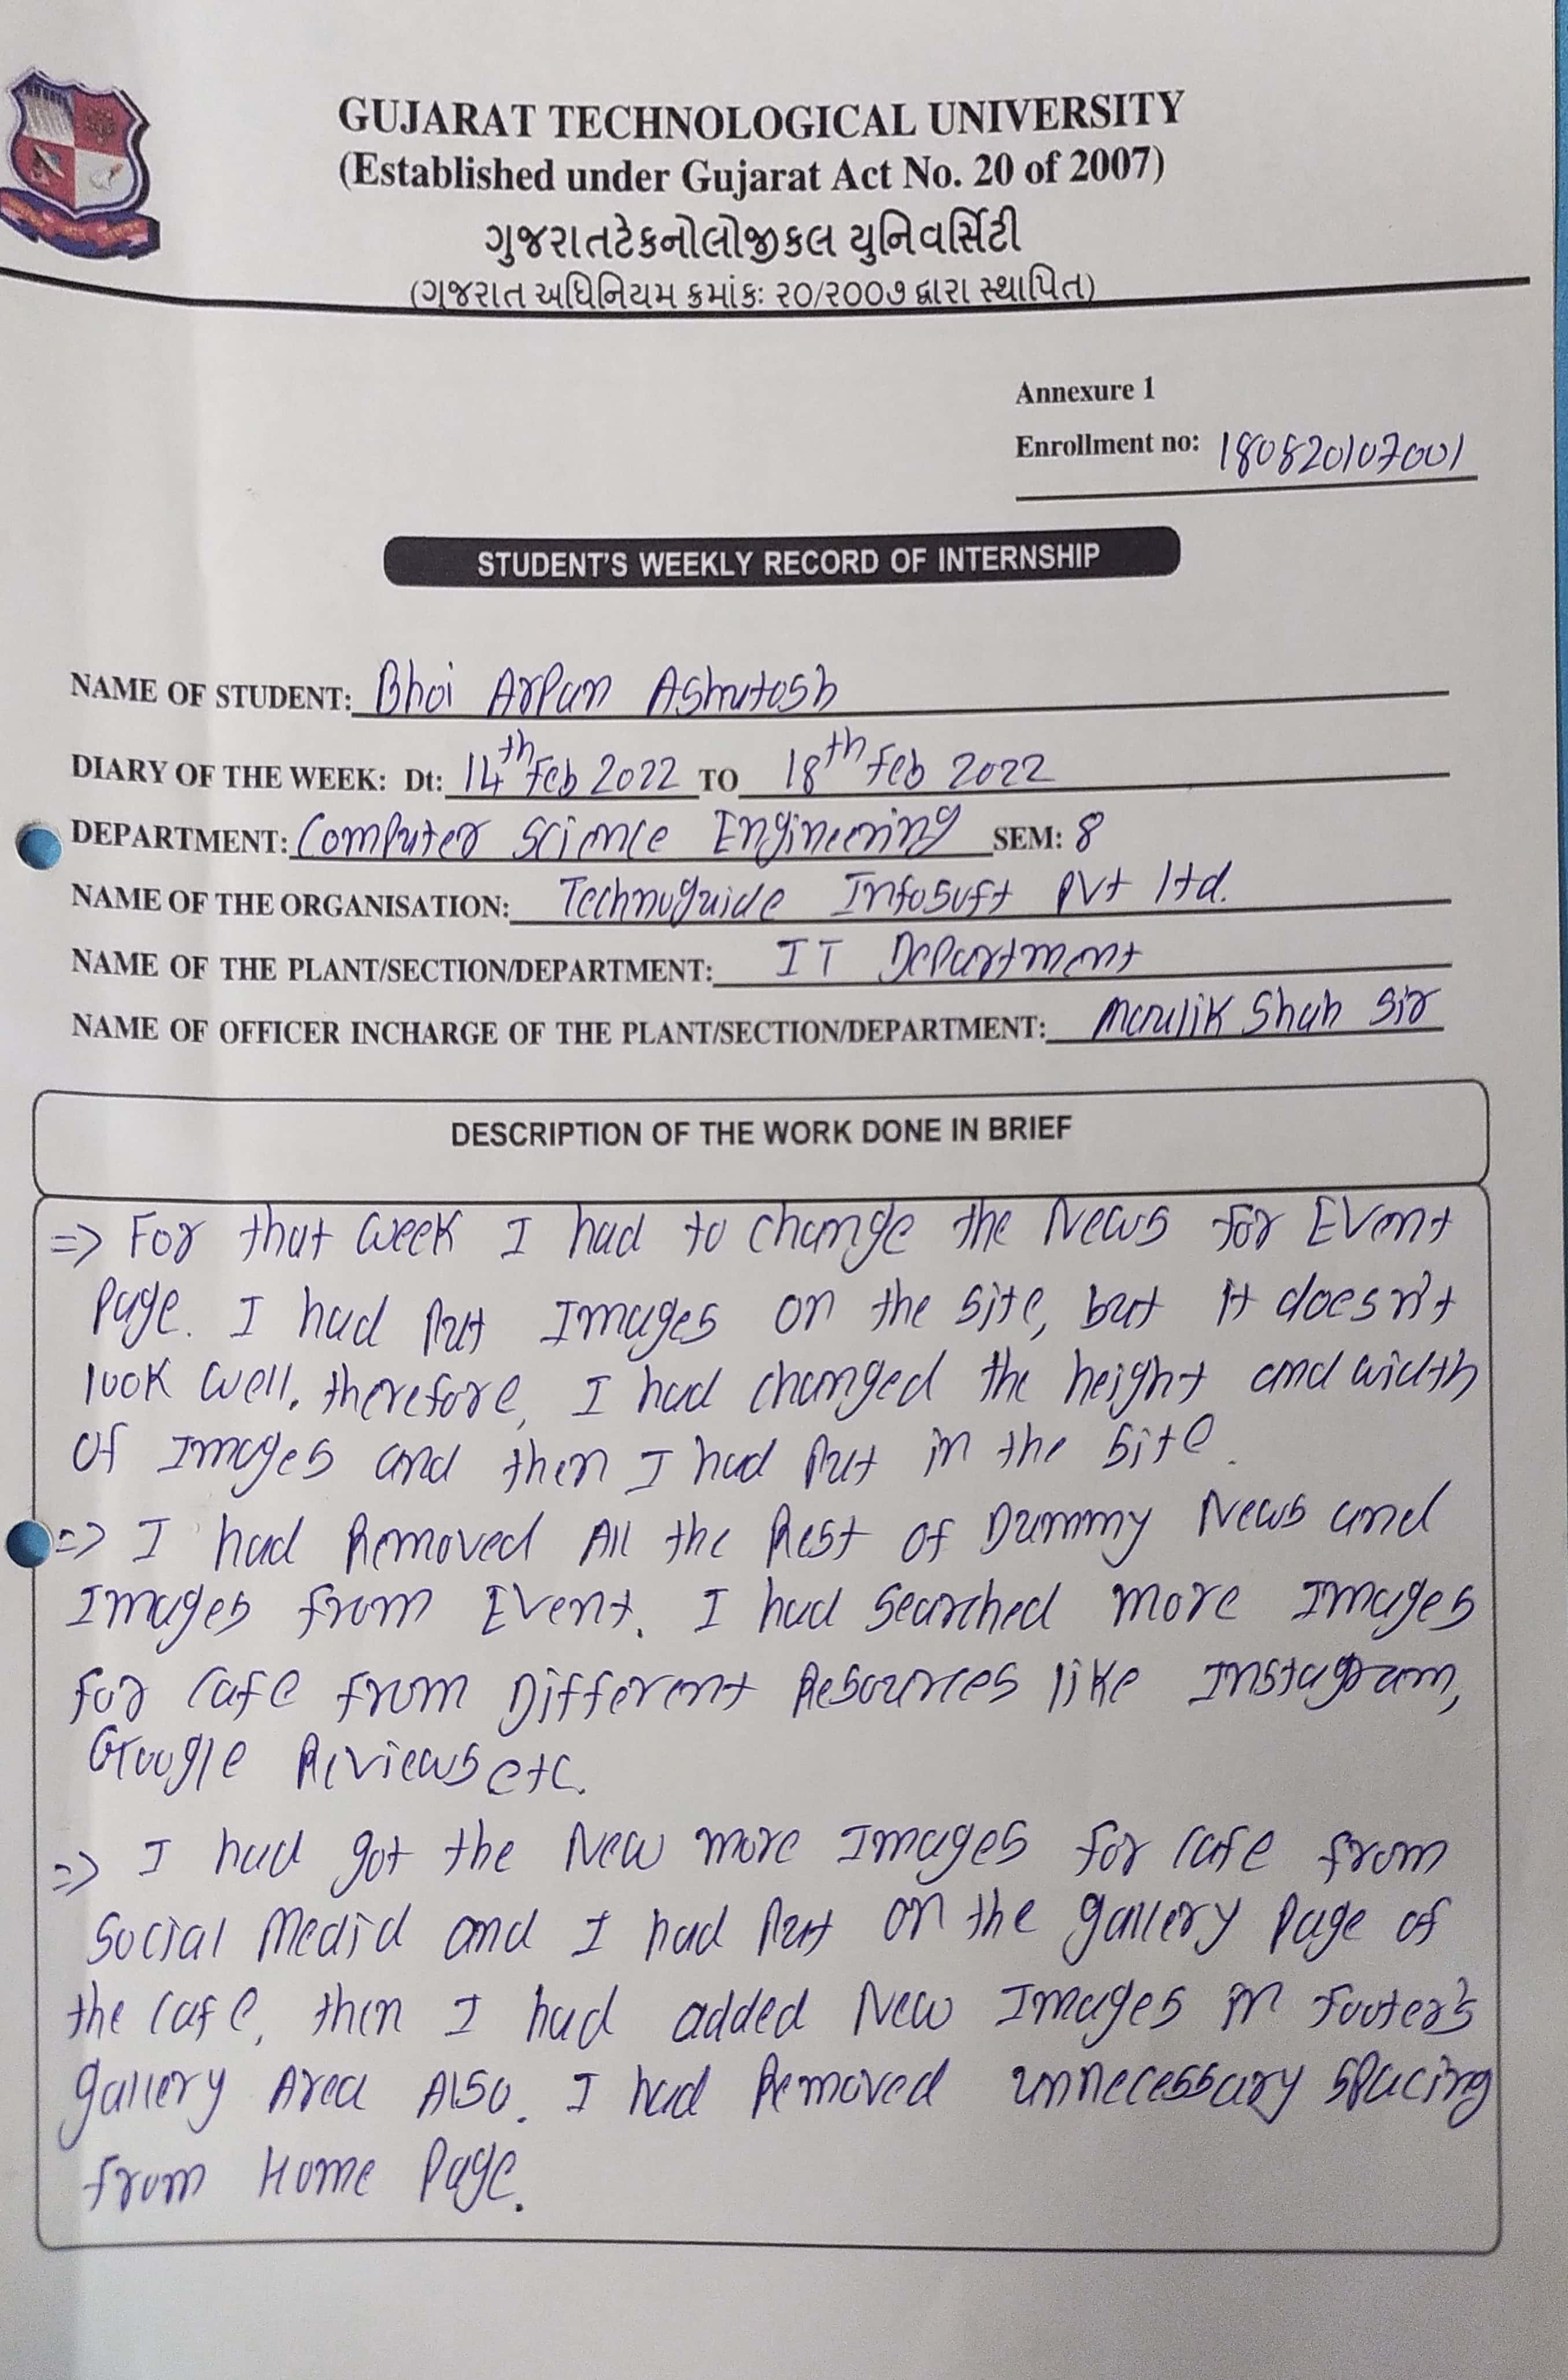 GUJARAT TECHNOLOGICAL UNIVERSITY
(Established under Gujarat Act No. 20 of 2007)
ગુજરાતટેકનોલોજીકલ યુનિવર્સિટી
(ગુજરાત અધિનિયમ ક્રમાંકઃ ૨૦/૨૦૦૭ દ્વારા સ્થાપિત)
Annexure 1
Enrollment no: 180820107001
STUDENT'S WEEKLY RECORD OF INTERNSHIP
NAME OF STUDENT: Bhoi Arpan Ashutosh
DIARY OF THE WEEK: Dt: 14th Feb 2022 TO 18th Feb 2022
DEPARTMENT: Computer Science Engineering SEM: 8
NAME OF THE ORGANISATION: Technoguide Infosoft Pvt ltd.
NAME OF THE PLANT/SECTION/DEPARTMENT: IT Department
NAME OF OFFICER INCHARGE OF THE PLANT/SECTION/DEPARTMENT: Maulik Shah Sir
DESCRIPTION OF THE WORK DONE IN BRIEF
=> For that week I had to change the News for Event
Page. I had Put Images on the site, but it doesn't
look well. therefore, I had changed the height and width
of Images and then I had Put in the site.
=> I had Removed All the Rest of Dummy News and
Images from Event. I had searched more Images
for Cafe from Different Resources like Instagram,
Google Reviews etc.
=> I had got the New more Images for Cafe from
Social Media and I had Put on the gallery Page of
the Cafe, then I had added New Images in footer's
gallery Area Also. I had Removed unnecessary spacing
from Home Page.